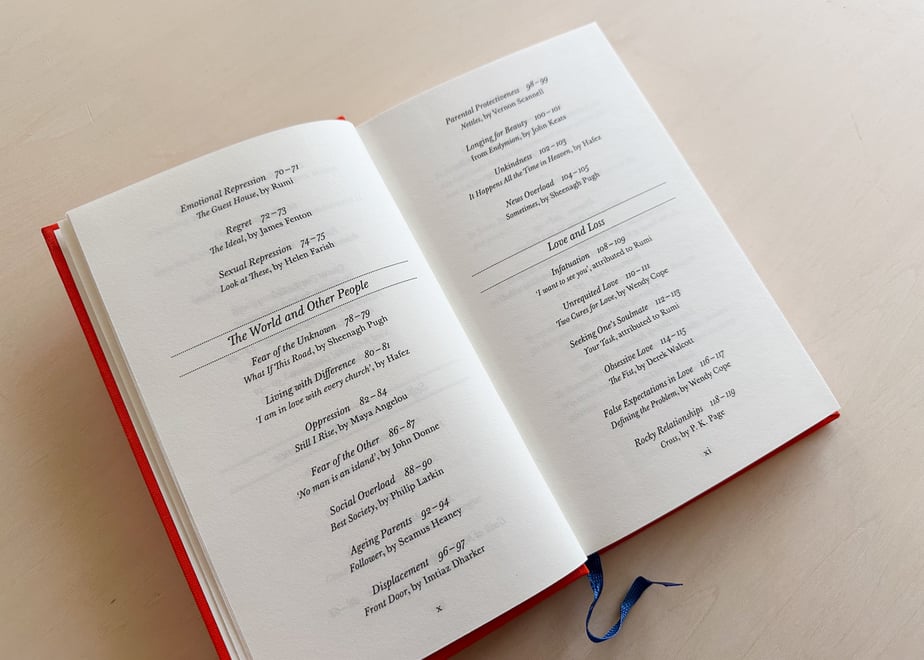 Emotional Repression 70–71
The Guest House, by Rumi
Regret 72–73
The Ideal, by James Fenton
Sexual Repression 74–75
Look at These, by Helen Farish
The World and Other People
Fear of the Unknown 78–79
What If This Road, by Sheenagh Pugh
Living with Difference 80–81
‘I am in love with every church’, by Hafez
Oppression 82–84
Still I Rise, by Maya Angelou
Fear of the Other 86–87
‘No man is an island’, by John Donne
Social Overload 88–90
Best Society, by Philip Larkin
Ageing Parents 92–94
Follower, by Seamus Heaney
Displacement 96–97
Front Door, by Imtiaz Dharker
x
Parental Protectiveness 98–99
Nettles, by Vernon Scannell
Longing for Beauty 100–101
from Endymion, by John Keats
Unkindness 102–103
It Happens All the Time in Heaven, by Hafez
News Overload 104–105
Sometimes, by Sheenagh Pugh
Love and Loss
Infatuation 108–109
‘I want to see you’, attributed to Rumi
Unrequited Love 110–111
Two Cures for Love, by Wendy Cope
Seeking One’s Soulmate 112–113
Your Task, attributed to Rumi
Obsessive Love 114–115
The Fist, by Derek Walcott
False Expectations in Love 116–117
Defining the Problem, by Wendy Cope
Rocky Relationships 118–119
Cross, by P. K. Page
xi